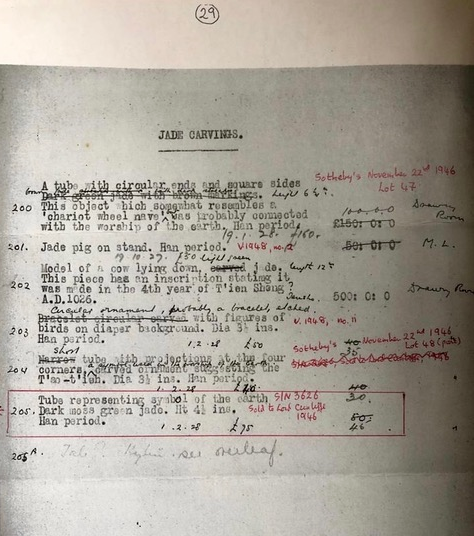 29
JADE CARVINGS.
Sotheby's November 22nd 1946
Lot 47
A tube with circular ends and square sides
Dark green jade with brown markings. Height 6¼".
200 This object which somewhat resembles a
'chariot wheel nave' was probably connected
with the worship of the earth. Han period. £150: 0: 0
Drawing Room
19.1.28. £160.
201. Jade pig on stand. Han period. V.1948, no. 50: 0: 0 M.L.
19.10.27. £50
Model of a cow lying down, carved jade. length 12"
202 This piece has an inscription stating it
was made in the 4th year of T'ien Sheng
A.D.1026. 500: 0: 0 Drawing Room
Circular ornament, probably a bracelet,
Bracelet circular carved with figures of
203 birds on diaper background. Dia 3½ ins. V.1948, no. 11
Han period. 1.2.28 £50
Sotheby's November 22nd 1946
Lot 48 (part)
Short
204 Narrow tube with projections at the four
corners, carved ornament suggesting the
T'ao-t'ieh. Dia 3½ ins. Han period.
1.2.28 £40 40
205. Tube representing symbol of the earth S/N 3626 30
Dark moss green jade. Ht 4½ ins. Sold to Lord Cunliffe
Han period. 1946 80
1.2.28 £75 45
205A. see overleaf.